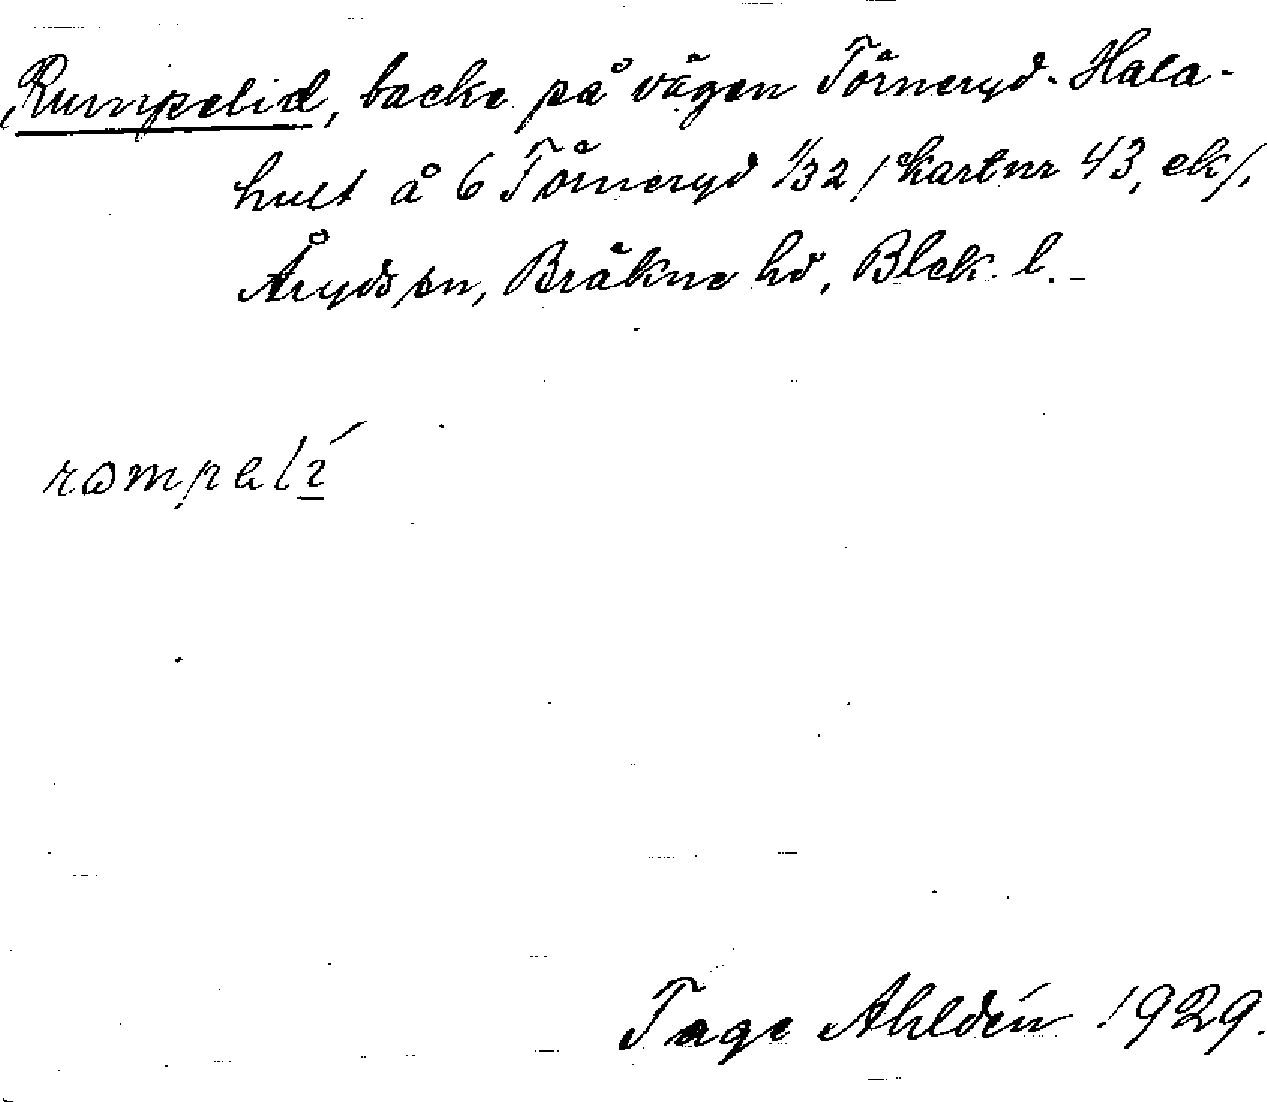 Rumpelid, backe på vägen Törneryd-Hala-
hult å 6 Törneryd 1/32 /kartnr 43, ek/,
Åryds sn, Bräkne hd, Blek. l.-
rompelí
Tage Ahldén 1929.